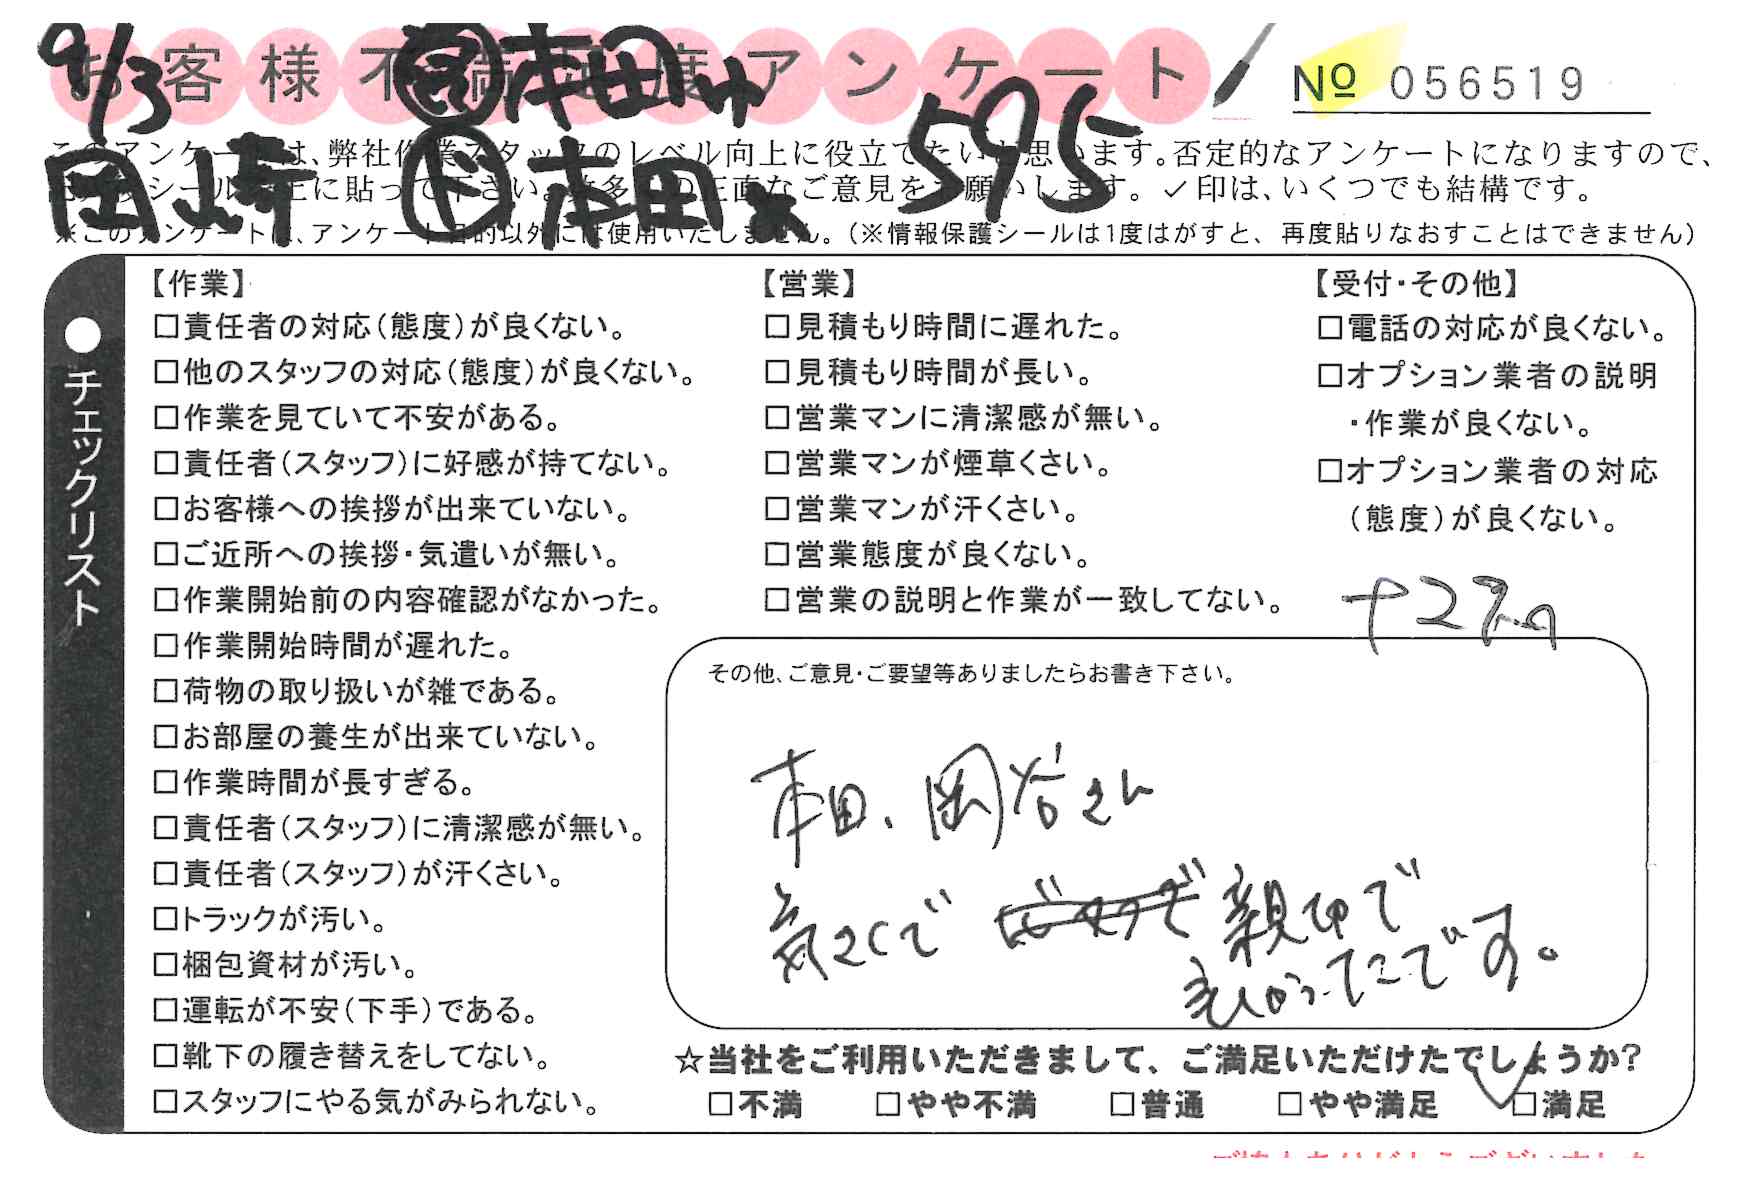 お客様不満足度アンケート
№ 056519
9/3 本田
595
岡崎 ト 本田
このアンケートは、弊社作業スタッフのレベル向上に役立てたいと思います。否定的なアンケートになりますので、
シール 上に貼って下さい。 正直なご意見をお願いします。✓印は、いくつでも結構です。
※このアンケートは、アンケート目的以外には使用いたしません。(※情報保護シールは1度はがすと、再度貼りなおすことはできません)
●チェックリスト
【作業】
□責任者の対応(態度)が良くない。
□他のスタッフの対応(態度)が良くない。
□作業を見ていて不安がある。
□責任者(スタッフ)に好感が持てない。
□お客様への挨拶が出来ていない。
□ご近所への挨拶・気遣いが無い。
□作業開始前の内容確認がなかった。
□作業開始時間が遅れた。
□荷物の取り扱いが雑である。
□お部屋の養生が出来ていない。
□作業時間が長すぎる。
□責任者(スタッフ)に清潔感が無い。
□責任者(スタッフ)が汗くさい。
□トラックが汚い。
□梱包資材が汚い。
□運転が不安(下手)である。
□靴下の履き替えをしてない。
□スタッフにやる気がみられない。
【営業】
□見積もり時間に遅れた。
□見積もり時間が長い。
□営業マンに清潔感が無い。
□営業マンが煙草くさい。
□営業マンが汗くさい。
□営業態度が良くない。
□営業の説明と作業が一致してない。
【受付・その他】
□電話の対応が良くない。
□オプション業者の説明
・作業が良くない。
□オプション業者の対応
(態度)が良くない。
その他、ご意見・ご要望等ありましたらお書き下さい。
本田、岡谷さん
気さくで 親切で
よかったです。
☆当社をご利用いただきまして、ご満足いただけたでしょうか?
□不満 □やや不満 □普通 □やや満足 ☑満足